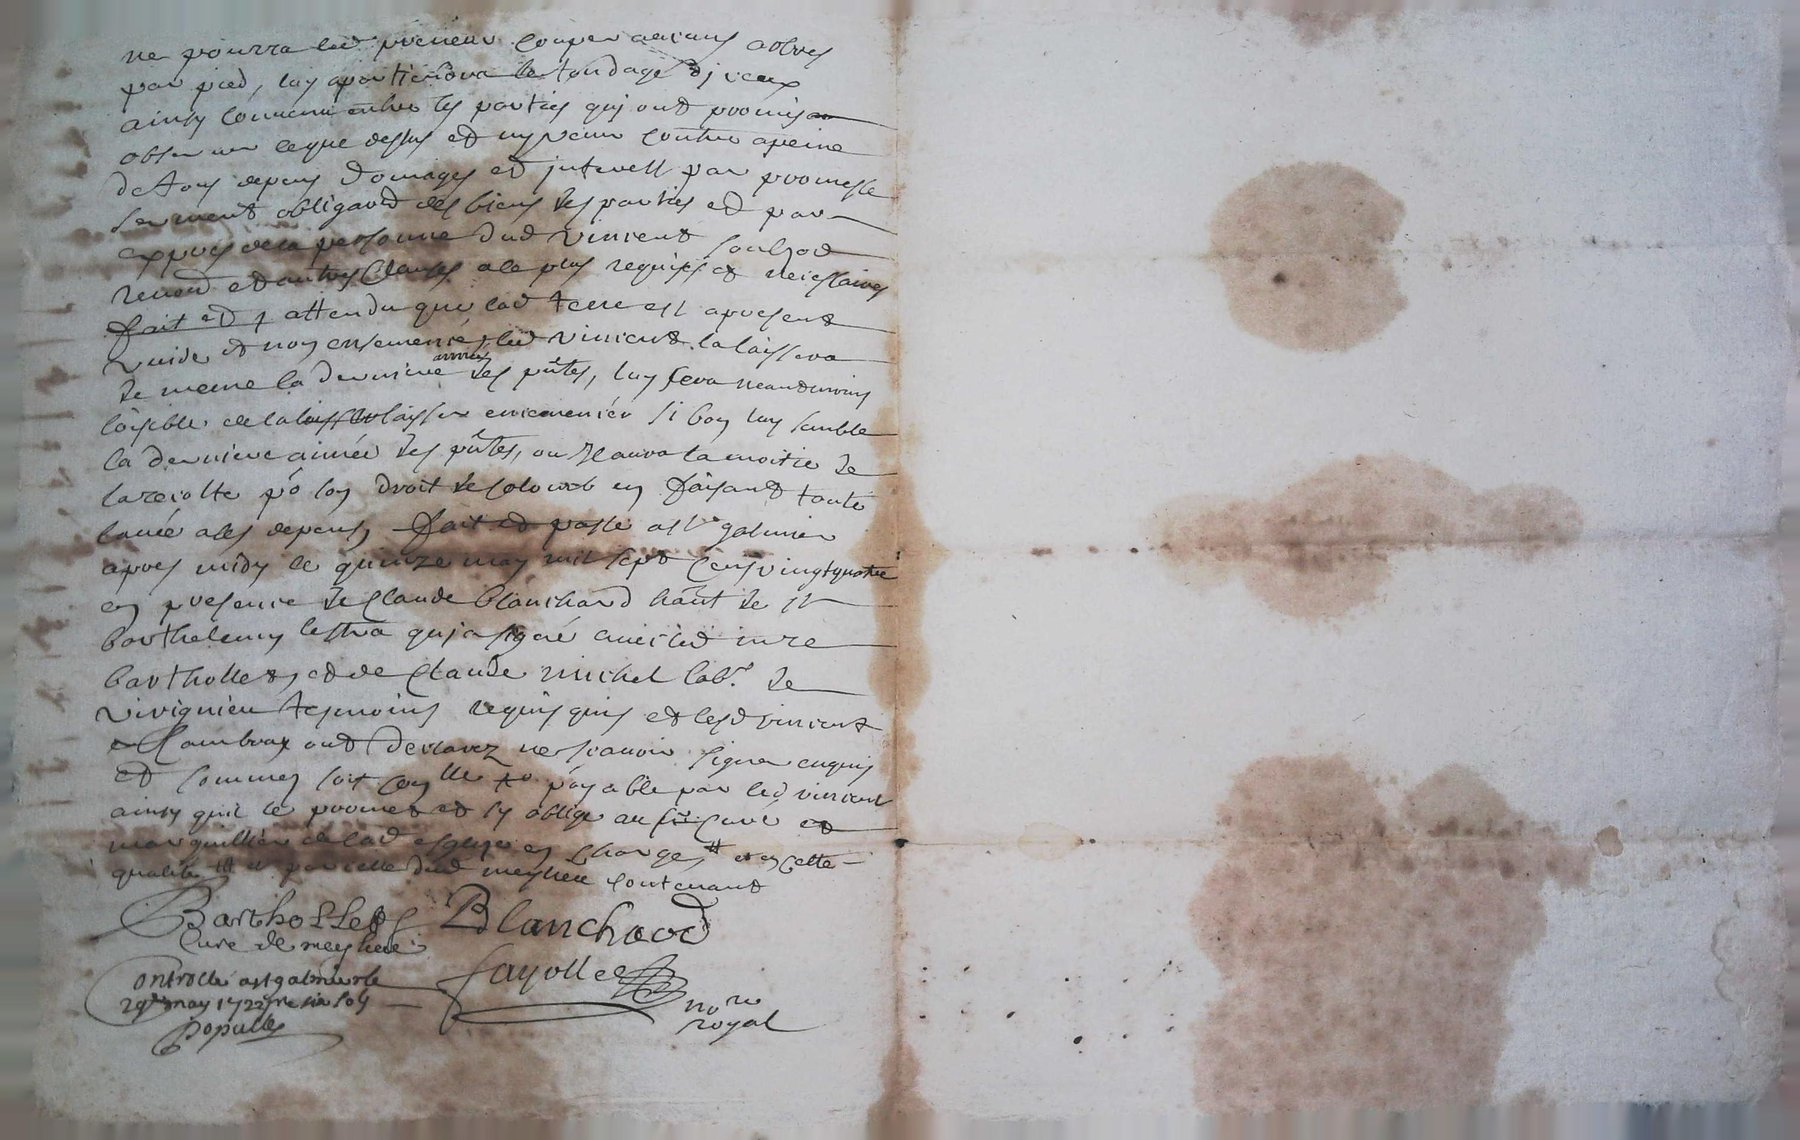 ne pourra led preneur couper aucuns arbres
par pied, luy apartiendra le tondage d'jceux
ainsy convenu entre les parties quj ont promis
observer ceque dessus et ny venir contre apeine
de tous depens domages et jnterest par promesse
serment obligaōn des biens des parties et par
expres de la personne dud vincent
renonō et autres clauses a ce plus requises et necessaires
fait et attendu que lad terre est apresent
vuide et non ensemencée led vincent la laissera
de meme la derniere année des pn̄tes, luy sera neantmoins
loisible de la laisser ensemencée si bon luy semble
la derniere année des pn̄tes, ou Il aura la moitie de
la recolte po son droit de colon en faisant toute
a ses depens, fait et passé a st galmier
apres midy le quinze may mil sept cens vingtquatre
en presence de Claude blanchard hānt de st
barthelemy lestra quj a signé avec led mre
barthollet, et de Claude michel labr. de
vivignieu tesmoins requis et lesd vincent
et ont declarez ne scavoir signer enquis
et sommez soit payable par led vincent
ainsy quil le promet et sy oblige au sr Curé et
marguillier de lad esglise en charge et en cette
qualité et parcelle dud meylieu contenant
Barthollet Blanchard
Cure de meylieu
Controllé a st galmier le
29e may 172 sols
fayolle
nore
royal
Popullé